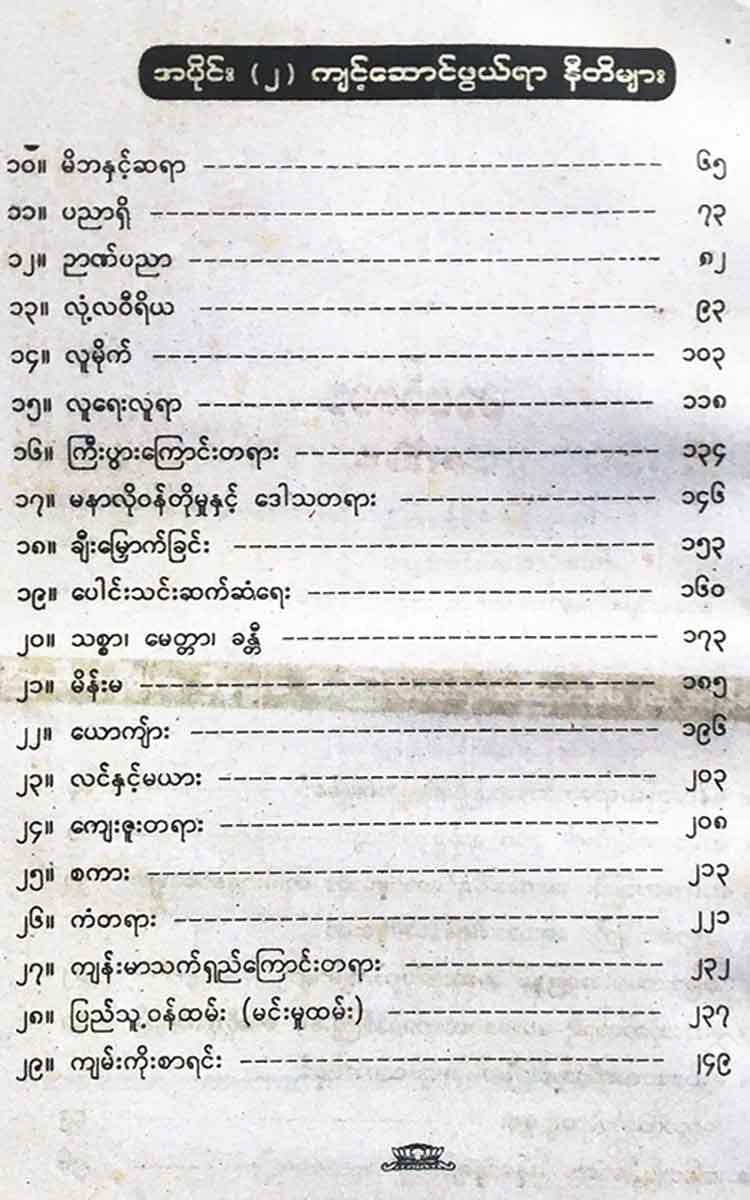 အပိုင်း (၂) ကျင့်ဆောင်ဖွယ်ရာ နီတိများ
၁၀။ မိဘနှင့်ဆရာ ------------------------ ၆၅
၁၁။ ပညာရှိ ------------------------ ၇၃
၁၂။ ဉာဏ်ပညာ ------------------------ ၈၂
၁၃။ လုံ့လဝီရိယ ------------------------ ၉၃
၁၄။ လူမိုက် ------------------------ ၁၀၃
၁၅။ လူရေးလူရာ ------------------------ ၁၁၈
၁၆။ ကြီးပွားကြောင်းတရား ------------------------ ၁၃၄
၁၇။ မနာလိုဝန်တိုမှုနှင့် ဒေါသတရား ------------------------ ၁၄၆
၁၈။ ချီးမြှောက်ခြင်း ------------------------ ၁၅၃
၁၉။ ပေါင်းသင်းဆက်ဆံရေး ------------------------ ၁၆၀
၂၀။ သစ္စာ၊ မေတ္တာ၊ ခန္တီ ------------------------ ၁၇၃
၂၁။ မိန်းမ ------------------------ ၁၈၅
၂၂။ ယောကျ်ား ------------------------ ၁၉၆
၂၃။ လင်နှင့်မယား ------------------------ ၂၀၃
၂၄။ ကျေးဇူးတရား ------------------------ ၂၀၈
၂၅။ စကား ------------------------ ၂၁၃
၂၆။ ကံတရား ------------------------ ၂၂၁
၂၇။ ကျန်းမာသက်ရှည်ကြောင်းတရား ------------------------ ၂၃၂
၂၈။ ပြည်သူ့ဝန်ထမ်း (မင်းမှုထမ်း) ------------------------ ၂၃၇
၂၉။ ကျမ်းကိုးစာရင်း ------------------------ ၂၄၉